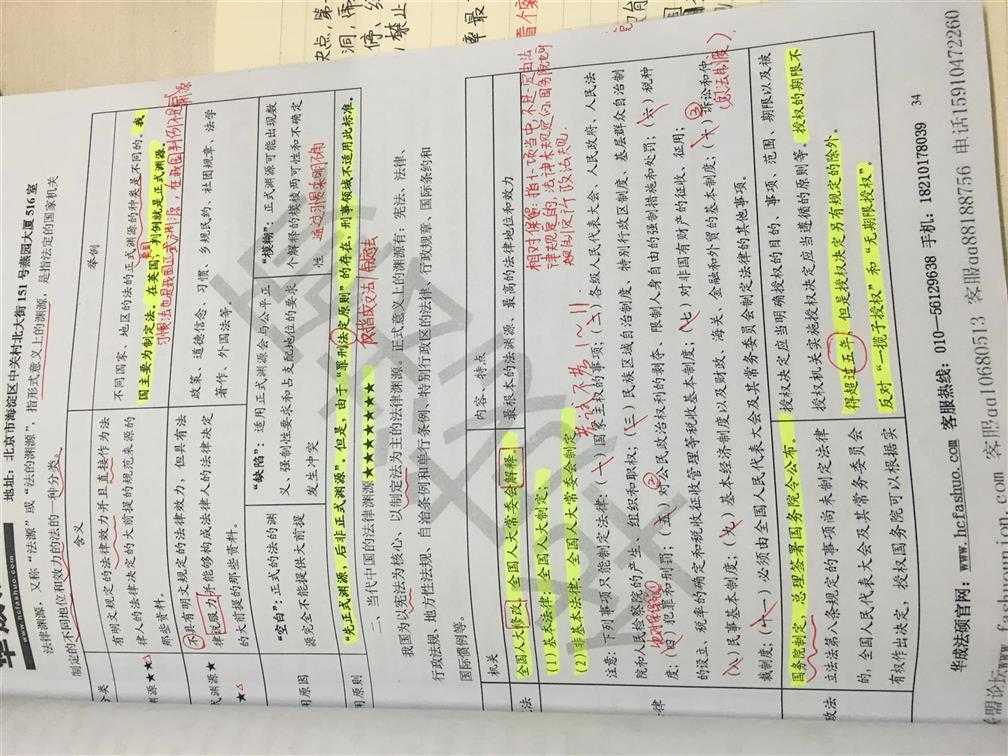 www.hcfashuo.com
地址：北京市海淀区中关村北大街 151 号燕园大厦 516 室
法律渊源，又称“法源”或“法的渊源”，指形式意义上的渊源，是指法定的国家机关
制定的不同地位和效力的法的一种分类。
分类
含义
举例
渊源★
有明文规定的法律效力并且直接作为法
律人的法律决定的大前提的规范来源的
那些资料。
不同国家、地区的法的正式渊源的种类是不同的。我
国主要为制定法，在英国，判例就是正式渊源。
式渊源★
不具有明文规定的法律效力，但具有法
律说服力并能够构成法律人的法律决定
的大前提的那些资料。
政策、道德信念、习惯、乡规民约、社团规章、法学
著作、外国法等。
用原因
“空白”：正式的法的渊
源完全不能提供大前提
“缺陷”：适用正式渊源会与公平正
义、强制性要求和占支配地位的要求
发生冲突
“模糊”：正式渊源可能出现数
个解释的模棱两可性和不确定
性
用原则
“先正式渊源，后非正式渊源”，但是，由于“罪刑法定原则”的存在，刑事领域不适用此标准。
二、当代中国的法律渊源★★★★★★★★
我国为以宪法为核心、以制定法为主的法律渊源，正式意义上的渊源有：宪法、法律、
行政法规、地方性法规、自治条例和单行条例、特别行政区的法律、行政规章、国际条约和
国际惯例等。
机关
内容、特点
法
全国人大修改，全国人大常委会解释。
最根本的法渊源、最高的法律地位和效力
律
（1）基本法律：全国人大制定。
（2）非基本法律：全国人大常委会制定
注意：下列事项只能制定法律：（一）国家主权的事项；（二）各级人民代表大会、人民政府、人民法
院和人民检察院的产生、组织和职权；（三）民族区域自治制度、特别行政区制度、基层群众自治制
度；（四）犯罪和刑罚；（五）对公民政治权利的剥夺、限制人身自由的强制措施和处罚；（六）税种
的设立、税率的确定和税收征收管理等税收基本制度；（七）对非国有财产的征收、征用；
（八）民事基本制度；（九）基本经济制度以及财政、海关、金融和外贸的基本制度；（十）诉讼和仲
裁制度；（十一）必须由全国人民代表大会及其常务委员会制定法律的其他事项。
政法
国务院制定，总理签署国务院令公布。
立法法第八条规定的事项尚未制定法律
的，全国人民代表大会及其常务委员会
有权作出决定，授权国务院可以根据实
授权决定应当明确授权的目的、事项、范围、期限以及被
授权机关实施授权决定应当遵循的原则等。授权的期限不
得超过五年，但是授权决定另有规定的除外。
反对“一揽子授权”和“无期限授权”。
相对保留
34
华成法硕官网：www.hcfashuo.com 客服热线：010—56129638 手机：18210178039
客服qq110680513 客服qq88188756 电话15910472260